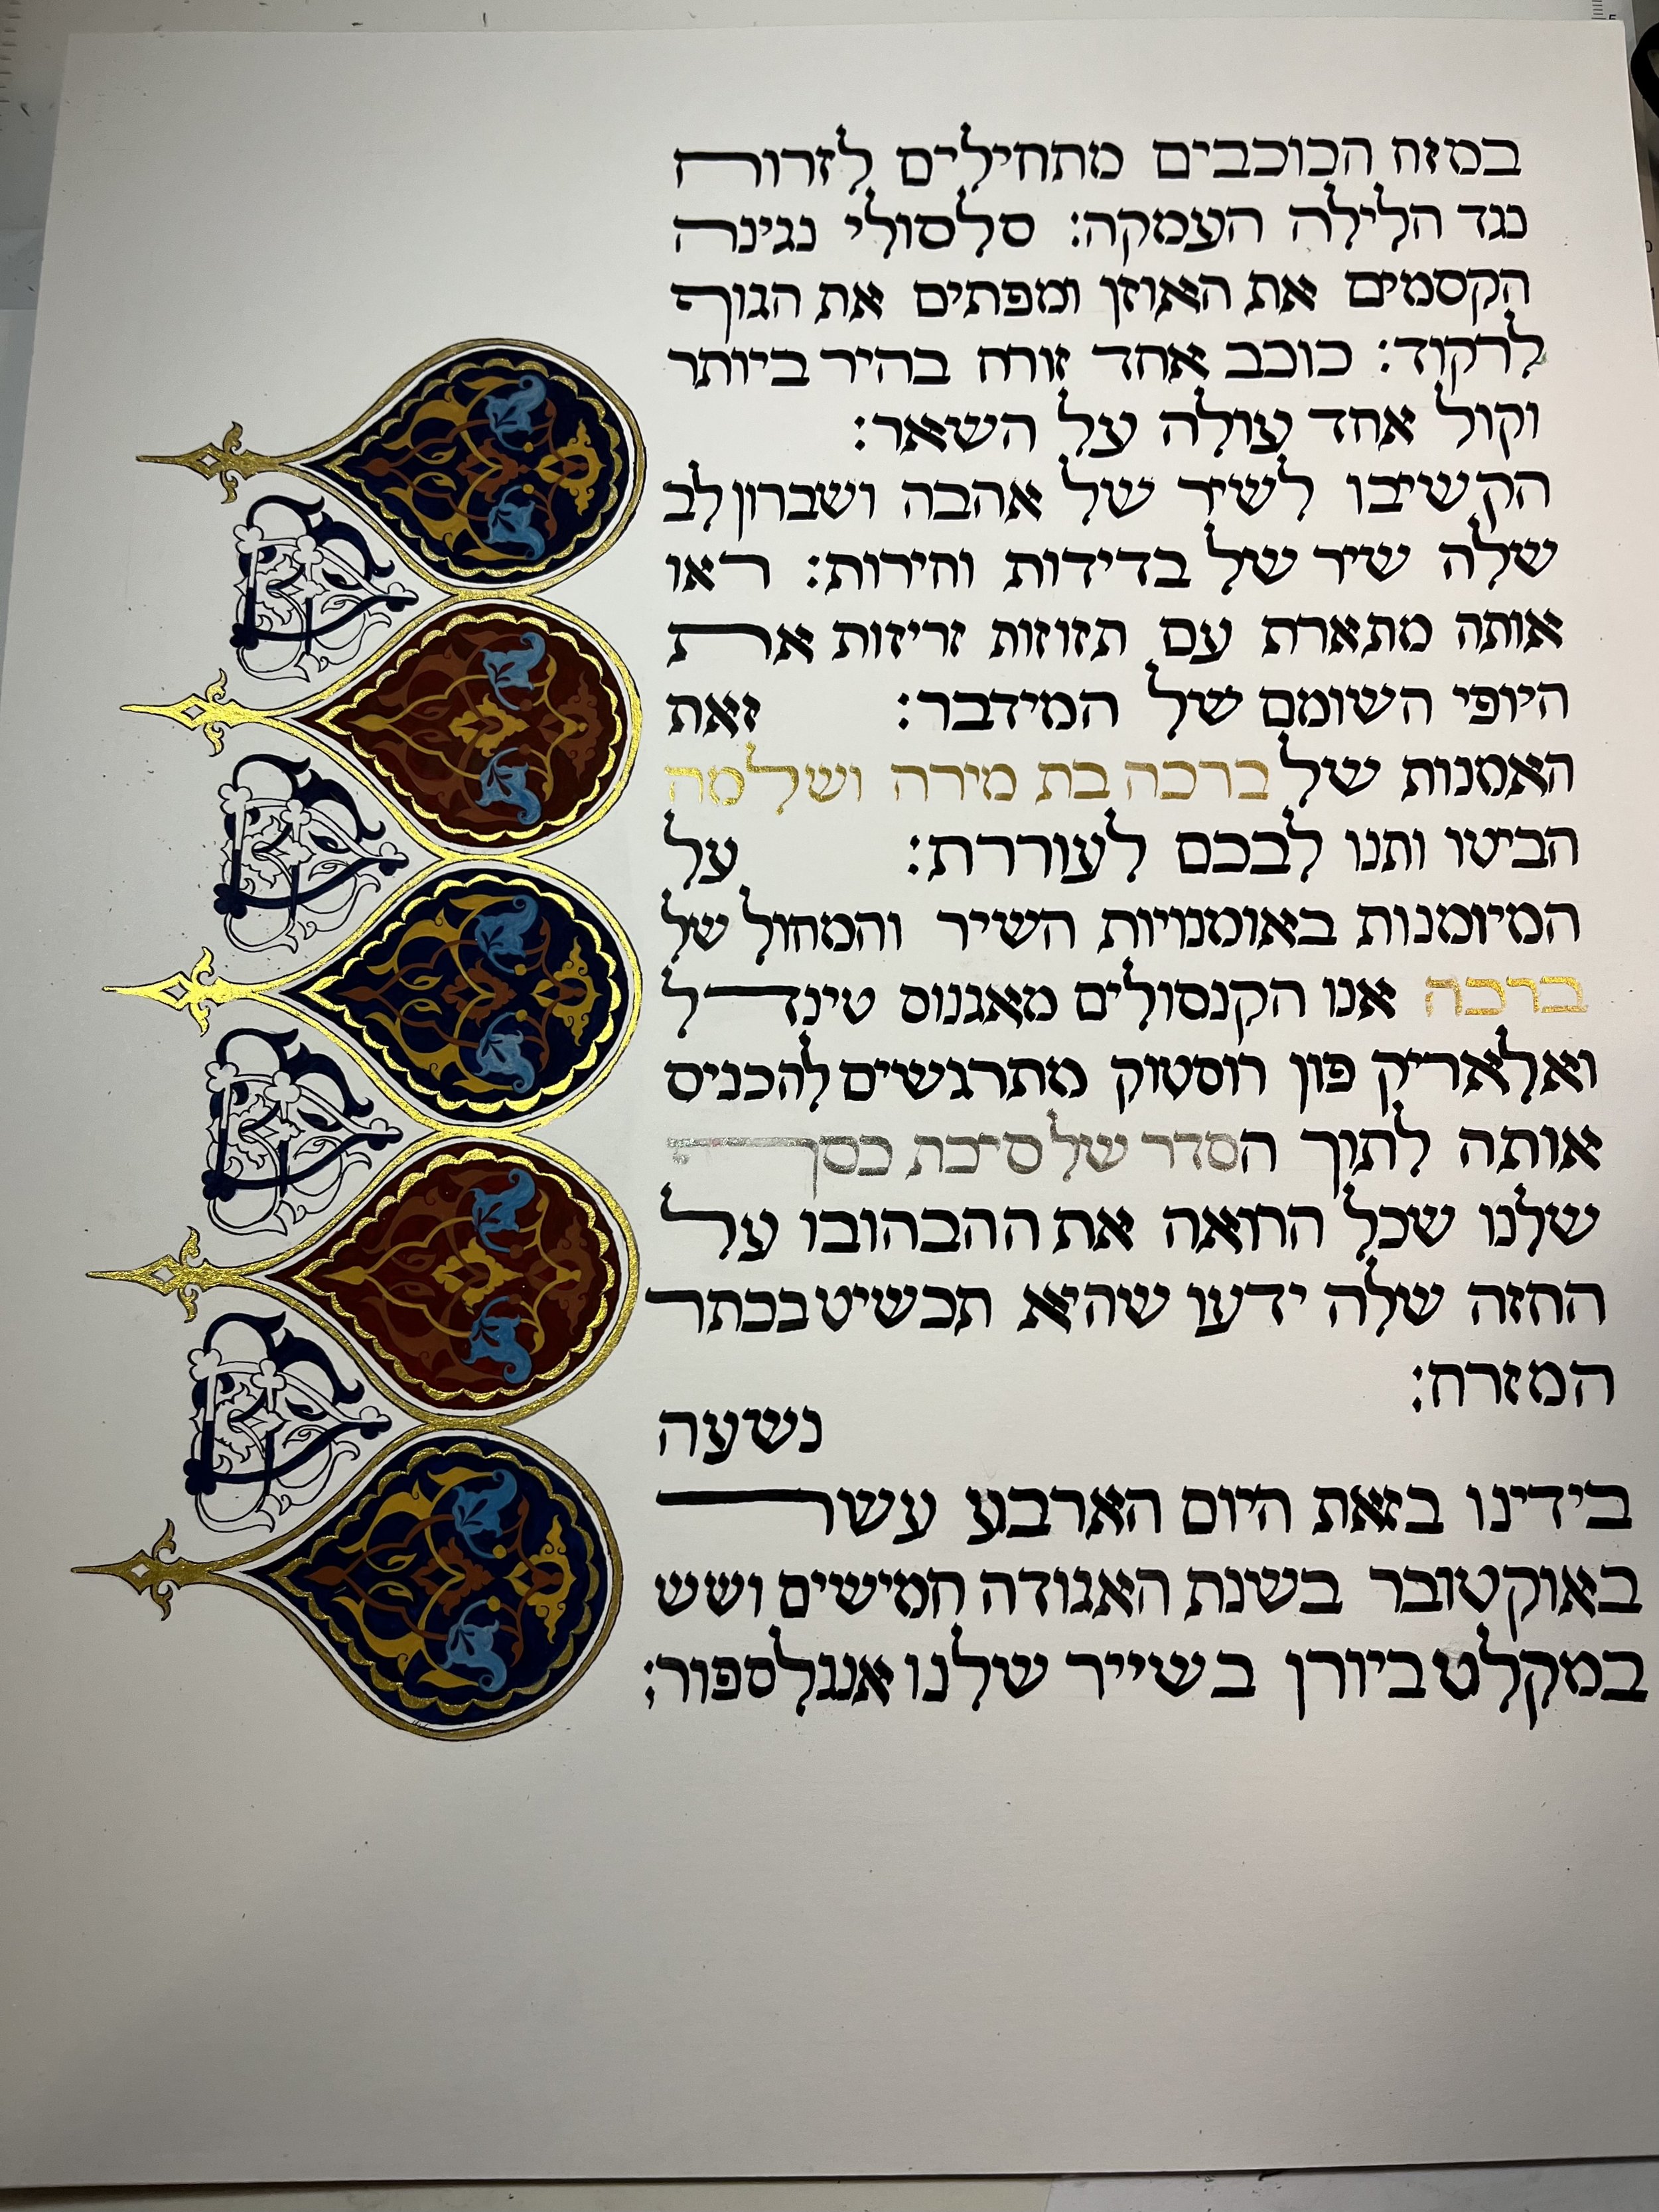 במזח הכוכבים מתחילים לזרוח
נגד הלילה העמקה: סלסולי נגינה
הקסמים את האוזן ומפתים את הגוף
לרקוד: כוכב אחד זורח בהיר ביותר
וקול אחד עולה על השאר:
הקשיבו לשיר של אהבה ושברון לב
שלה שיר של בדידות וחירות: ראו
אותה מתארת עם תזוזות זריזות את
היופי השומם של המידבר: זאת
האמנות של ברכה בת מירה ושלמה
הביטו ותנו לבכם לעוררת: על
המיומנות באומנויות השיר והמחול של
ברכה אנו הקנסולים מאגנוס טינדל
ואלאריק פון רוסטוק מתרגשים להכניס
אותה לתוך הסדר של סיכת כסף
שלנו שכל הרואה את ההבהובו על
החזה שלה ידעו שהיא תכשיט בכתר
המזרח:
נשעה
בידינו בזאת היום הארבע עשר
באוקטובר בשנת האגודה חמישים ושש
במקלט ביורן בשייר שלנו אנגלספור: